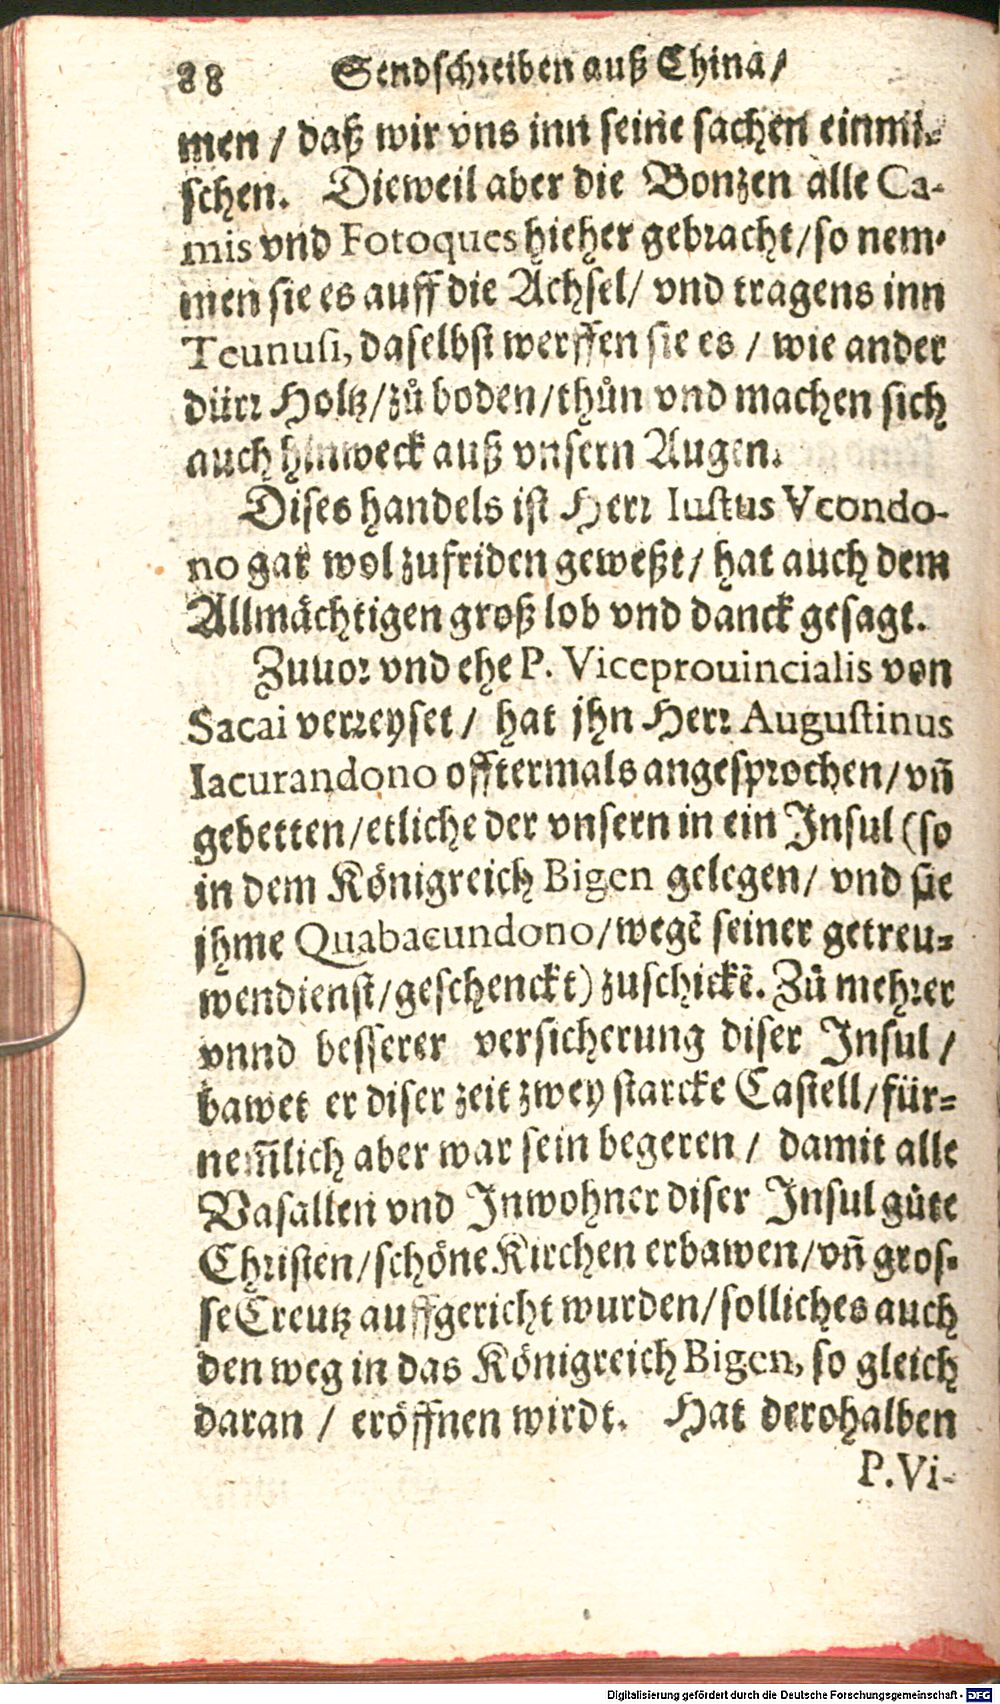 88 Sendschreiben auß China/
men / daß wir vns inn seine sachen einmi-
schen. Dieweil aber die Bonzen alle Ca-
mis vnd Fotoques hieher gebracht/so nem-
men sie es auff die Achsel/ vnd tragens inn
Teunusi, daselbst werffen sie es / wie ander
dürr Holtz/zů boden/thůn vnd machen sich
auch hinweck auß vnsern Augen.
Dises handels ist Herr Iustus Vcondo-
no gar wol zufriden geweßt/ hat auch dem
Allmächtigen groß lob vnd danck gesagt.
Zuuor vnd ehe P. Viceprouincialis von
Sacai verreyset/ hat jhn Herr Augustinus
Iacurandono offtermals angesprochen/vñ
gebetten/etliche der vnsern in ein Insul (so
in dem Königreich Bigen gelegen/ vnd sie
jhme Quabacundono/wegẽ seiner getreu-
wendienst/geschenckt) zuschickẽ. Zů mehrer
vnnd besserer versicherung diser Insul/
bawet er diser zeit zwey starcke Castell/für-
nem̃lich aber war sein begeren / damit alle
Vasallen vnd Inwohner diser Insul gůte
Christen/schöne Kirchen erbawen/vñ gros-
se Creutz auffgericht wurden/solliches auch
den weg in das Königreich Bigen, so gleich
daran / eröffnen wirdt. Hat derohalben
P. Vi-
Digitalisierung gefördert durch die Deutsche Forschungsgemeinschaft - DFG